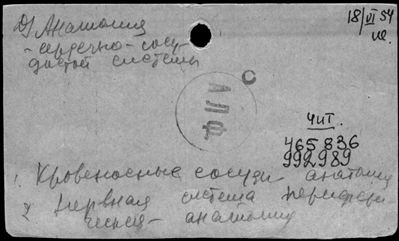 Д) Анатомия
- сердечно-сосу-
дистой системы
18/VI 54
с
АПФ
Чит.
465836
992989
1. Кровеносные сосуды - анатомия
2. Нервная система перифери-
ческая - анатомия